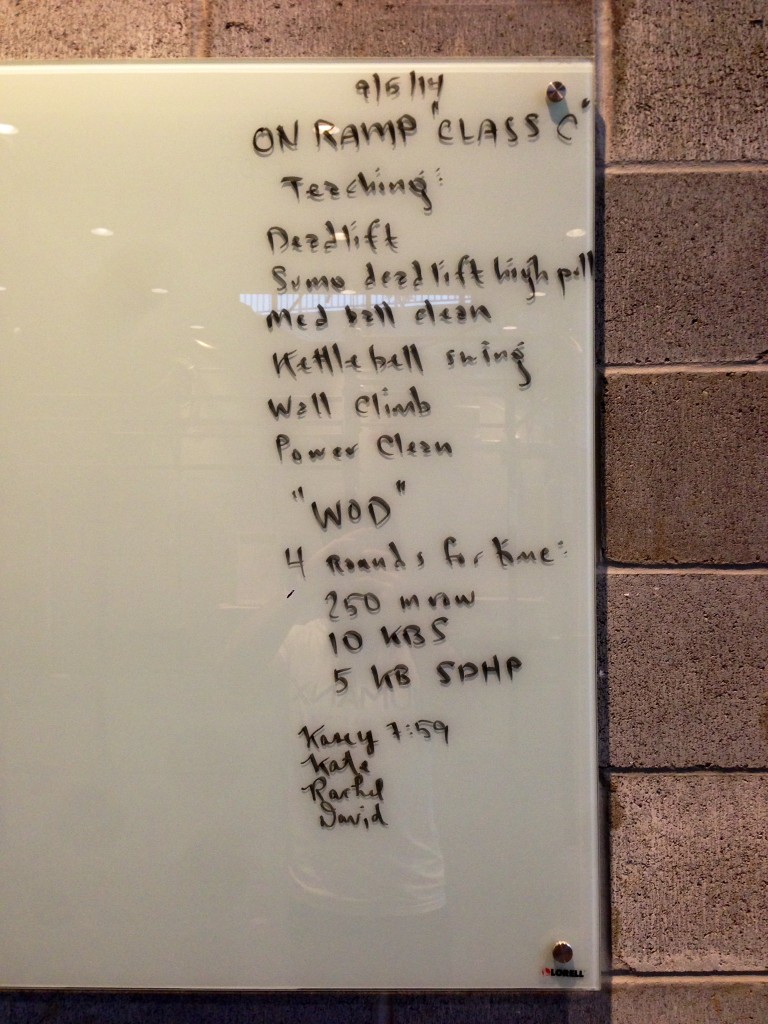 9/5/14
ON RAMP "CLASS C"
Teaching:
Deadlift
Sumo deadlift high pull
Med ball clean
Kettlebell swing
Wall Climb
Power Clean
"WOD"
4 Rounds for time:
250 m row
10 KBS
5 KB SDHP
Kasey 7:59
Kate
Rachel
David
LORELL